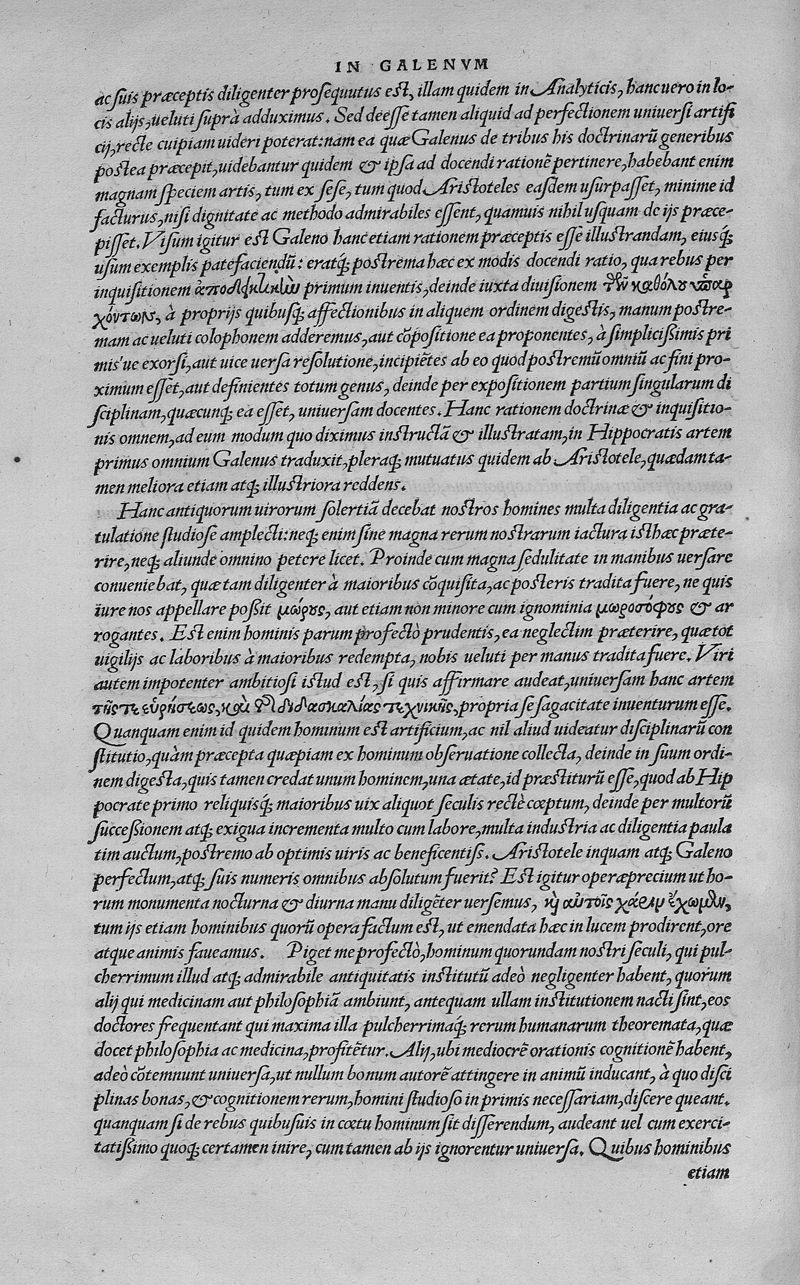 IN GALENVM
ac suis præceptis diligenter prosequutus est, illam quidem in Analyticis, hanc uero in lo-
cis alijs, ueluti suprà adduximus. Sed deesse tamen aliquid ad perfectionem uniuersi artifi
cij, recte cuipiam uideri poterat: nam ea quæ Galenus de tribus his doctrinarũ generibus
postea præcepit, uidebantur quidem & ipsa ad docendi rationẽ pertinere, habebant enim
magnam speciem artis, tum ex sese, tum quod Aristoteles easdem usurpasset, minime id
facturus, nisi dignitate ac methodo admirabiles essent, quamuis nihil usquam de ijs præce-
pisset. Visum igitur est Galeno hanc etiam rationem præceptis esse illustrandam, eiusq́;
usum exemplis patefaciendũ: eratq́; postrema hæc ex modis docendi ratio, qua rebus per
inquisitionem ἀποδεικτικὼν primum inuentis, deinde iuxta diuisionem τῶν καθόλου ὑπαρ
χόντων, à proprijs quibusq́; affectionibus in aliquem ordinem digestis, manum postre-
mam ac ueluti colophonem adderemus, aut cõpositione ea proponentes, à simplicissimis pri
mis'ue exorsi, aut uice uersa resolutione, incipiẽtes ab eo quod postremũ omniũ ac fini pro-
ximum esset, aut definientes totum genus, deinde per expositionem partium singularum di
sciplinam, quæcunq; ea esset, uniuersam docentes. Hanc rationem doctrinæ & inquisitio-
nis omnem, ad eum modum quo diximus instructã & illustratam, in Hippocratis artem
primus omnium Galenus traduxit, pleraq; mutuatus quidem ab Aristotele, quædam ta-
men meliora etiam atq; illustriora reddens.
Hanc antiquorum uirorum solertiã decebat nostros homines multa diligentia ac gra-
tulatione studiose amplecti: neq; enim sine magna rerum nostrarum iactura isthæc præte-
rire, neq; aliunde omnino petere licet. Proinde cum magna sedulitate in manibus uersare
conueniebat, quæ tam diligenter à maioribus cõquisita, ac posteris tradita fuere, ne quis
iure nos appellare possit μώρους, aut etiam non minore cum ignominia μωροσόφους & ar
rogantes. Est enim hominis parum profectò prudentis, ea neglectim præterire, quæ tot
uigilijs ac laboribus à maioribus redempta, nobis ueluti per manus tradita fuere. Viri
autem impotenter ambitiosi istud est, si quis affirmare audeat, uniuersam hanc artem
τῆς τε εὑρήσεως, καὶ τῆς διδασκαλίας τεχνικῆς, propria se sagacitate inuenturum esse.
Quanquam enim id quidem hominum est artificium, ac nil aliud uideatur disciplinarũ con
stitutio, quàm præcepta quæpiam ex hominum obseruatione collecta, deinde in suum ordi-
nem digesta, quis tamen credat unum hominem, una ætate, id præstiturũ esse, quod ab Hip
pocrate primo reliquisq́; maioribus uix aliquot seculis rectè cœptum, deinde per multorũ
successionem atq; exigua incrementa multo cum labore, multa industria ac diligentia paula
tim auctum, postremo ab optimis uiris ac beneficentiss. Aristotele inquam atq; Galeno
perfectum, atq; suis numeris omnibus absolutum fuerit? Est igitur operæprecium ut ho-
rum monumenta nocturna & diurna manu diligẽter uersemus, καὶ αὐτοῖς χάριν ἔχωμεν,
tum ijs etiam hominibus quorũ opera factum est, ut emendata hæc in lucem prodirent, ore
atque animis faueamus. Piget me profectò, hominum quorundam nostri seculi, qui pul-
cherrimum illud atq; admirabile antiquitatis institutũ adeò negligenter habent, quorum
alij qui medicinam aut philosophiã ambiunt, antequam ullam institutionem nacti sint, eos
doctores frequentant qui maxima illa pulcherrimaq́; rerum humanarum theoremata, quæ
docet philosophia ac medicina, profitẽtur. Alij, ubi mediocrẽ orationis cognitionẽ habent,
adeò cõtemnunt uniuersa, ut nullum bonum autorẽ attingere in animũ inducant, à quo disci
plinas bonas, & cognitionem rerum, homini studioso in primis necessariam, discere queant.
quanquam si de rebus quibusuis in cœtu hominum sit disserendum, audeant uel cum exerci-
tatissimo quoq; certamen inire, cum tamen ab ijs ignorentur uniuersa. Quibus hominibus
etiam